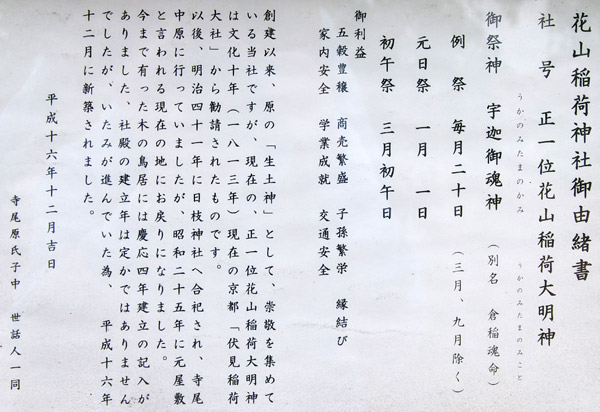 花山稲荷神社御由緒書
社 号 正一位花山稲荷大明神
うかのみたまのかみ うかのみたまのみこと
御祭神 宇迦御魂神 (別名 倉稲魂命)
例 祭 毎月二十日 (三月、九月除く)
元日祭 一月 一日
初午祭 三月初午日
御利益
五穀豊穣 商売繁盛 子孫繁栄 縁結び
家内安全 学業成就 交通安全
創建以来、原の「生土神」として、崇敬を集めて
いる当社ですが、現在の、正一位花山稲荷大明神
は文化十年(一八一三年)現在の京都「伏見稲荷
大社」から勧請されたものです。
以後、明治四十一年に日枝神社へ合祀され、寺尾
中原に行っていましたが、昭和二十五年に元屋敷
と言われる現在の地にお戻りになりました。
今まで有った木の鳥居には慶応四年建立の記入が
ありました、社殿の建立年は定かではありません
でしたが、いたみが進んでいた為、 平成十六年
十二月に新築されました。
平成十六年十二月吉日
寺尾原氏子中 世話人一同